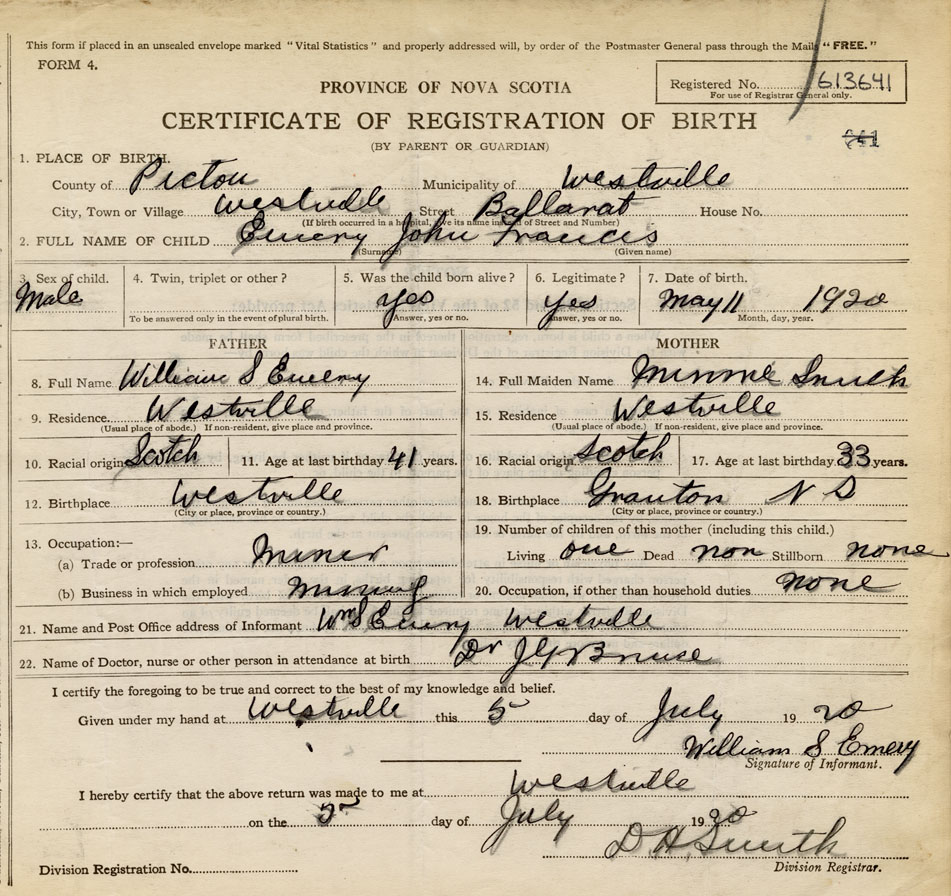 This form if placed in an unsealed envelope marked "Vital Statistics" and properly addressed will, by order of the Postmaster General pass through the Mails "FREE."
FORM 4.
Registered No. 613641
For use of Registrar General only.
PROVINCE OF NOVA SCOTIA
CERTIFICATE OF REGISTRATION OF BIRTH
(BY PARENT OR GUARDIAN)
1. PLACE OF BIRTH.
County of Pictou Municipality of Westville
City, Town or Village Westville Street Ballarat House No.
(If birth occurred in a hospital, give its name instead of Street and Number)
2. FULL NAME OF CHILD Emery John Francis
(Surname) (Given name)
3. Sex of child. 4. Twin, triplet or other? 5. Was the child born alive? 6. Legitimate? 7. Date of birth.
Male yes yes May 11 1920
To be answered only in the event of plural birth. Answer, yes or no. Answer, yes or no. Month, day, year.
FATHER MOTHER
8. Full Name William S Emery 14. Full Maiden Name Minnie Smith
9. Residence Westville 15. Residence Westville
(Usual place of abode.) If non-resident, give place and province. (Usual place of abode.) If non-resident, give place and province.
10. Racial origin Scotch 11. Age at last birthday 41 years. 16. Racial origin Scotch 17. Age at last birthday 33 years.
12. Birthplace Westville 18. Birthplace Granton N S
(City or place, province or country.) (City or place, province or country.)
19. Number of children of this mother (including this child.)
13. Occupation:—
(a) Trade or profession Miner Living one Dead non Stillborn none
(b) Business in which employed Mining 20. Occupation, if other than household duties none
21. Name and Post Office address of Informant Wm S Emery Westville
22. Name of Doctor, nurse or other person in attendance at birth Dr
I certify the foregoing to be true and correct to the best of my knowledge and belief.
Given under my hand at Westville this 5 day of July 19 20
William S Emery
Signature of Informant.
I hereby certify that the above return was made to me at Westville
on the 5 day of July 1920
D. H. Smith
Division Registration No. Division Registrar.